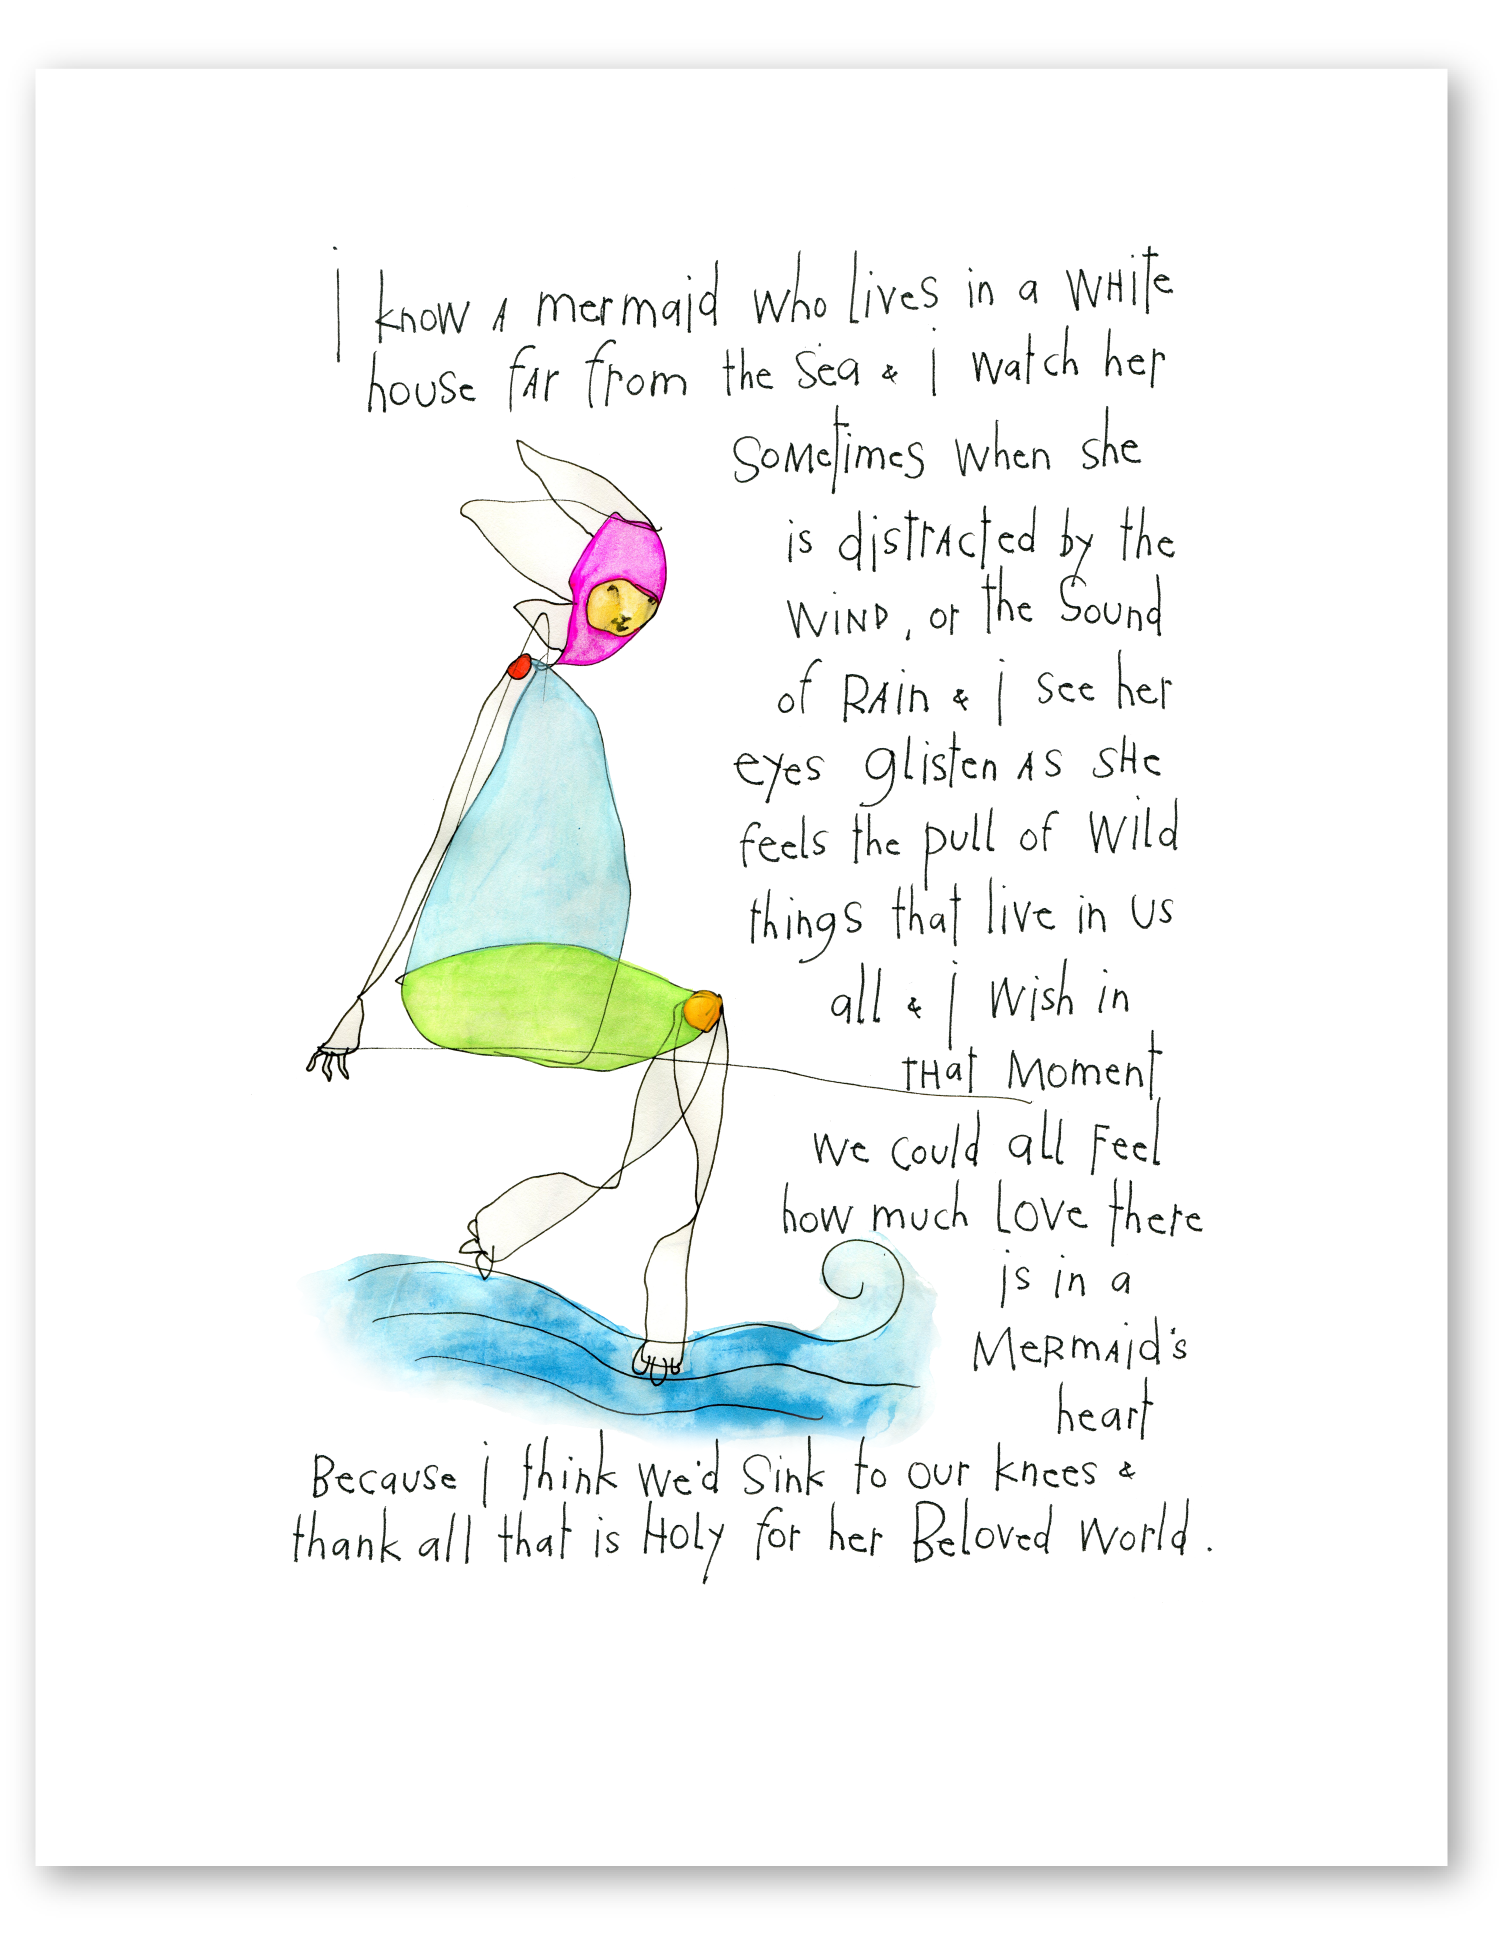 i know A mermaid who lives in a WHite
house fAr from the sea & i watch her
SoMetimes when she
is distrActed by the
WiND, or the Sound
of RAin & i see her
eyes glisten AS sHe
feels the pull of Wild
things that live in us
all & i Wish in
tHat Moment
we could all Feel
how much LOVe there
is in a
MeRmAid's
heart
Because i think we'd Sink to our knees &
thank all that is HOLy for her Beloved World.